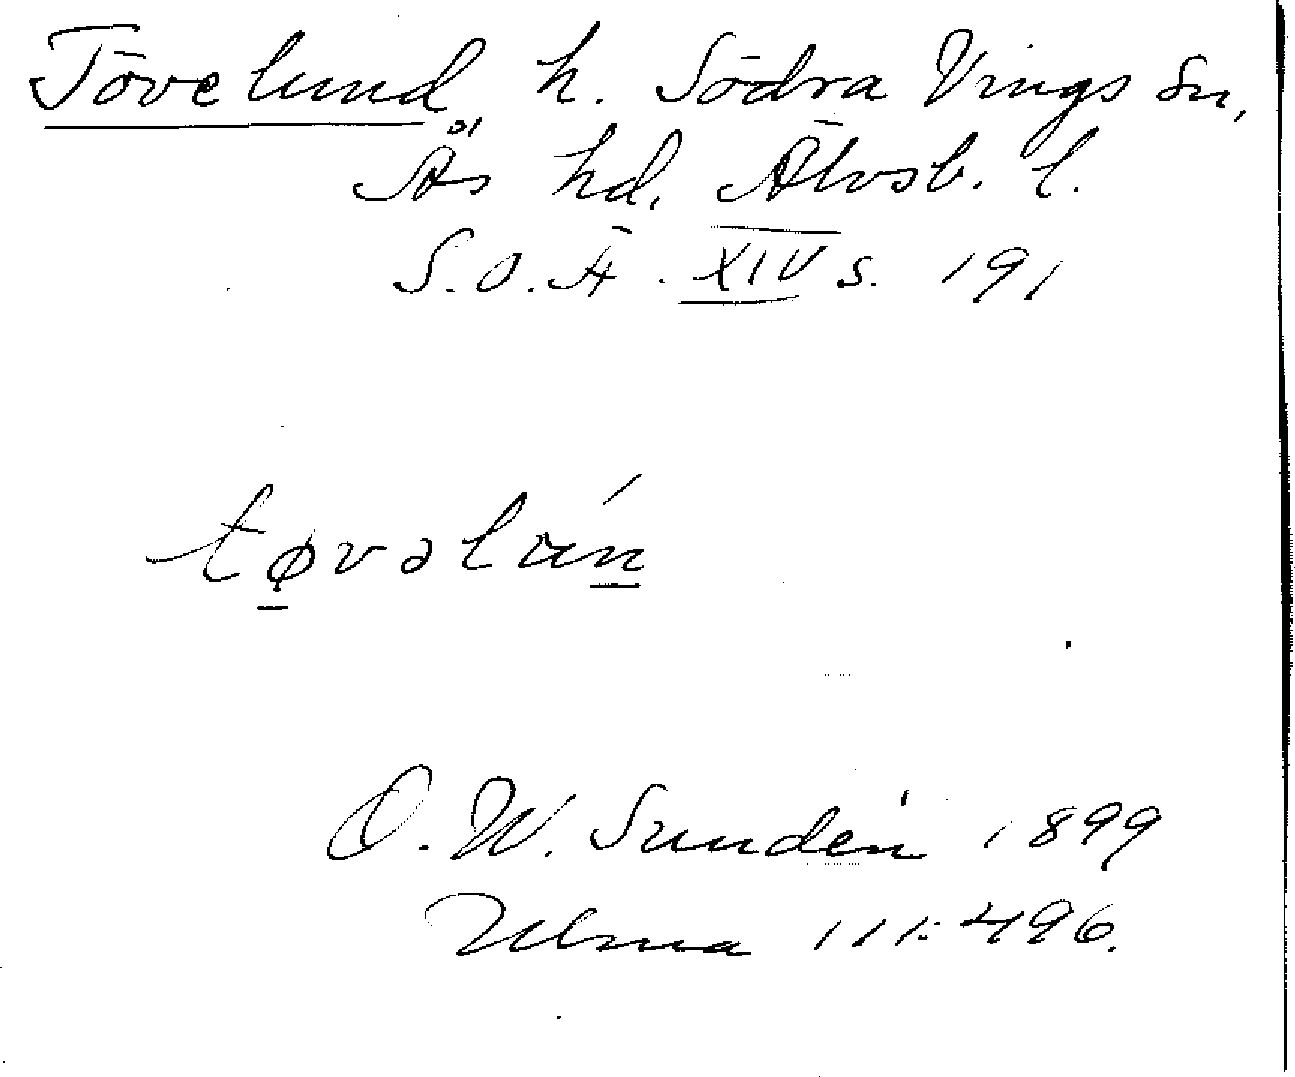 Tövelund, h. Södra Vings sn,
Ås hd, Älvsb. l.
S.O.Ä. XIV s. 191
tøvəlún
O. W. Sundén 1899
Ulma 111:496.